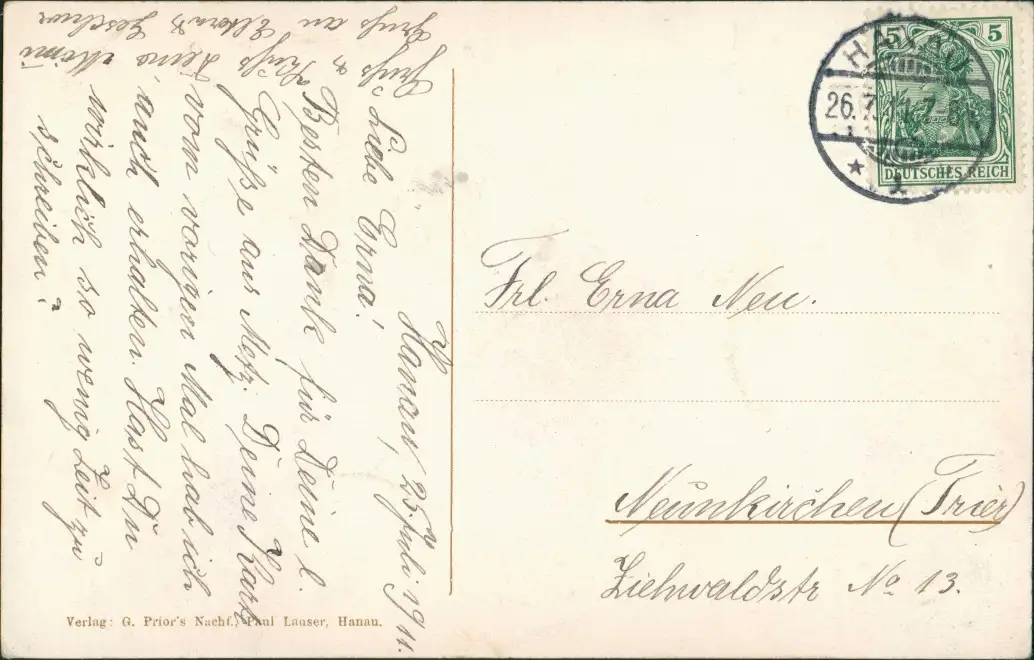 Hanau, 25. Juli 1911.
Liebe Erna!
Besten Dank für Deine l.
Grüße aus Metz. Deine Karte
vom vorigen Mal hab ich
auch erhalten. Hast Du
wirklich so wenig Zeit zu
schreiben?
Gruß u. Kuß Deine
Gruß an Eltern & Geschw
HANAU
26.7.11.7-8
* 1
5 5
DEUTSCHES REICH
Frl. Erna Neu.
Neunkirchen (Trier)
Ziehwaldstr No 13.
Verlag: G. Prior's Nachf., Paul Lauser, Hanau.